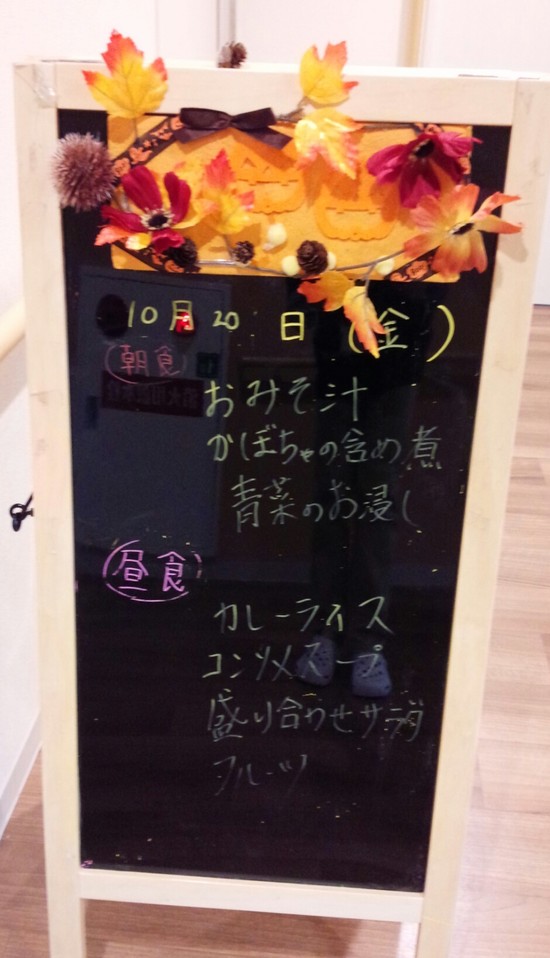 10月20日(金)
(朝食)
おみそ汁
かぼちゃの含め煮
青菜のお浸し
(昼食)
カレーライス
コンソメスープ
盛り合わせサラダ
フルーツ